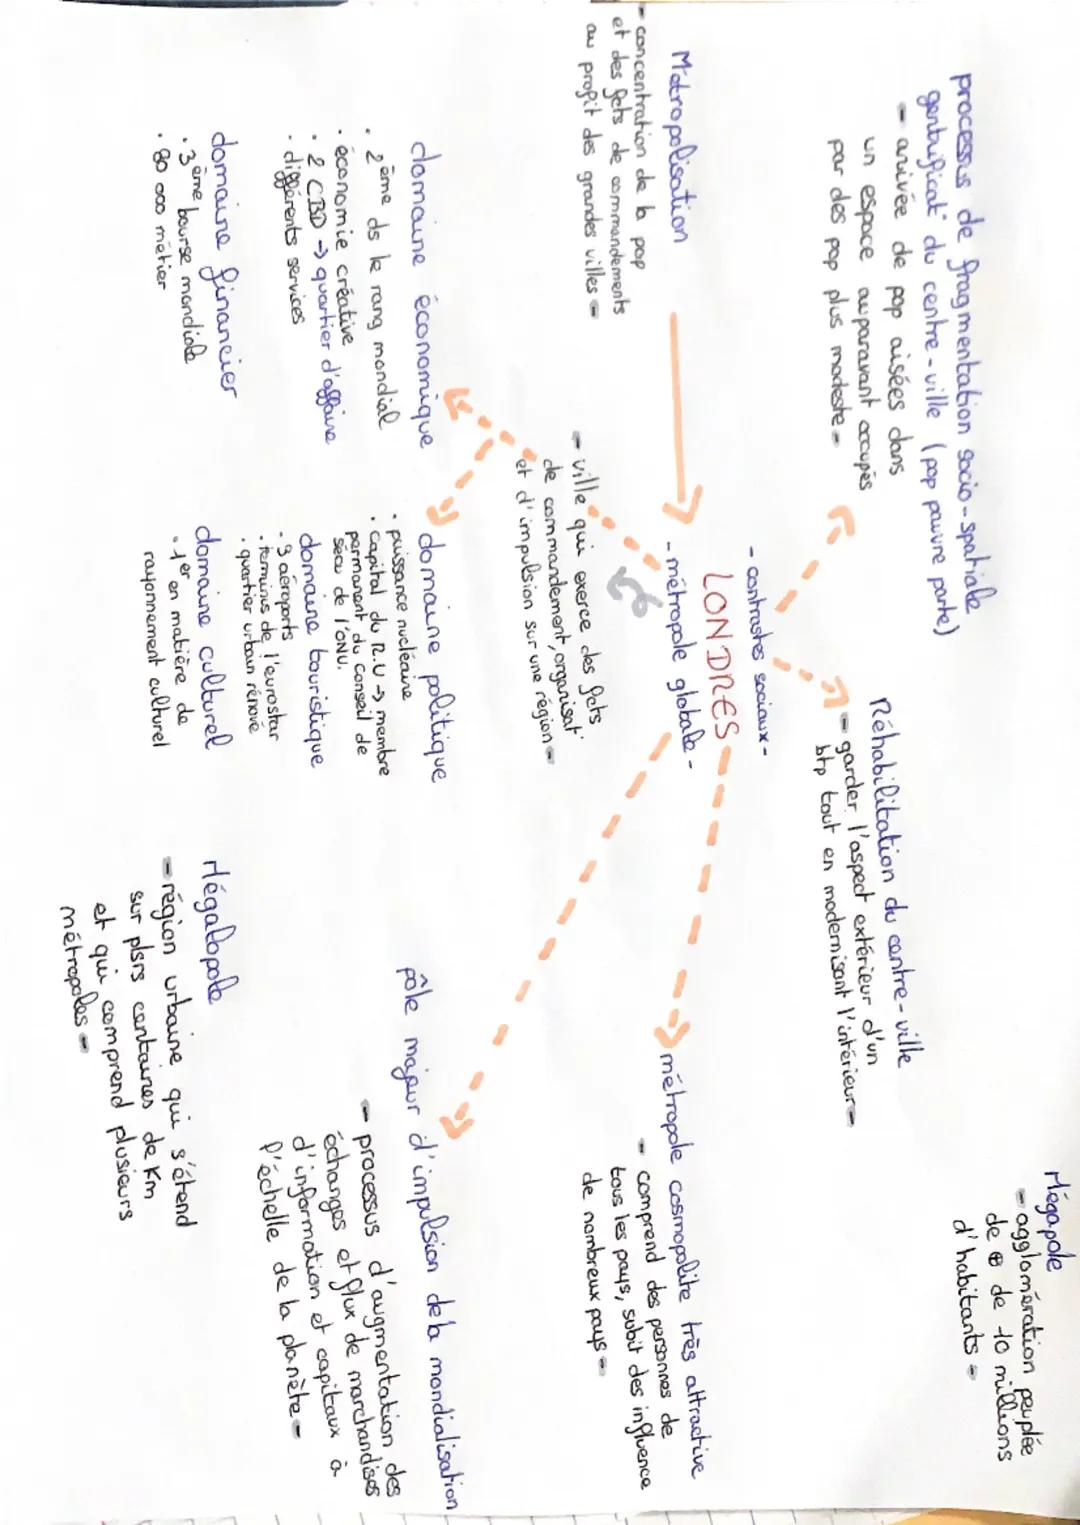 processus de fragmentation socio-spatiale
gentrificat° du centre-ville (pop pauvre parte)
- arrivée de pop aisées dans
un espace auparavant occupés
par des pop plus modeste -
Réhabilitation du centre-ville
- garder l'aspect extérieur d'un
btp tout en modernisant l'intérieur -
Mégapole
- agglomération peuplée
de ⊕ de 10 millions
d'habitants -
- contrastes sociaux -
LONDRES
- métropole globale -
Métropolisation
- concentration de la pop
et des fcts de commandements
au profit des grandes villes -
- ville qui exerce des fcts
de commandement, organisat°
et d'impulsion sur une région -
métropole cosmopolite très attractive
- comprend des personnes de
tous les pays, subit des influence
de nombreux pays -
domaine économique
· 2ème ds le rang mondial
· économie créative
· 2 CBD → quartier d'affaire
· différents services
domaine financier
· 3ème bourse mondiale
· 80 000 métier
domaine politique
· puissance nucléaire
· capital du R.U → membre
permanent du conseil de
sécu de l'ONU.
domaine touristique
· 3 aéroports
· terminus de l'eurostar
· quartier urbain rénové
domaine culturel
· 1er en matière de
rayonnement culturel
pôle majeur d'impulsion de la mondialisation
- processus d'augmentation des
échanges et flux de marchandises
d'information et capitaux à
l'échelle de la planète -
Mégalopole
- région urbaine qui s'étend
sur plsrs centaines de Km
et qui comprend plusieurs
métropoles -